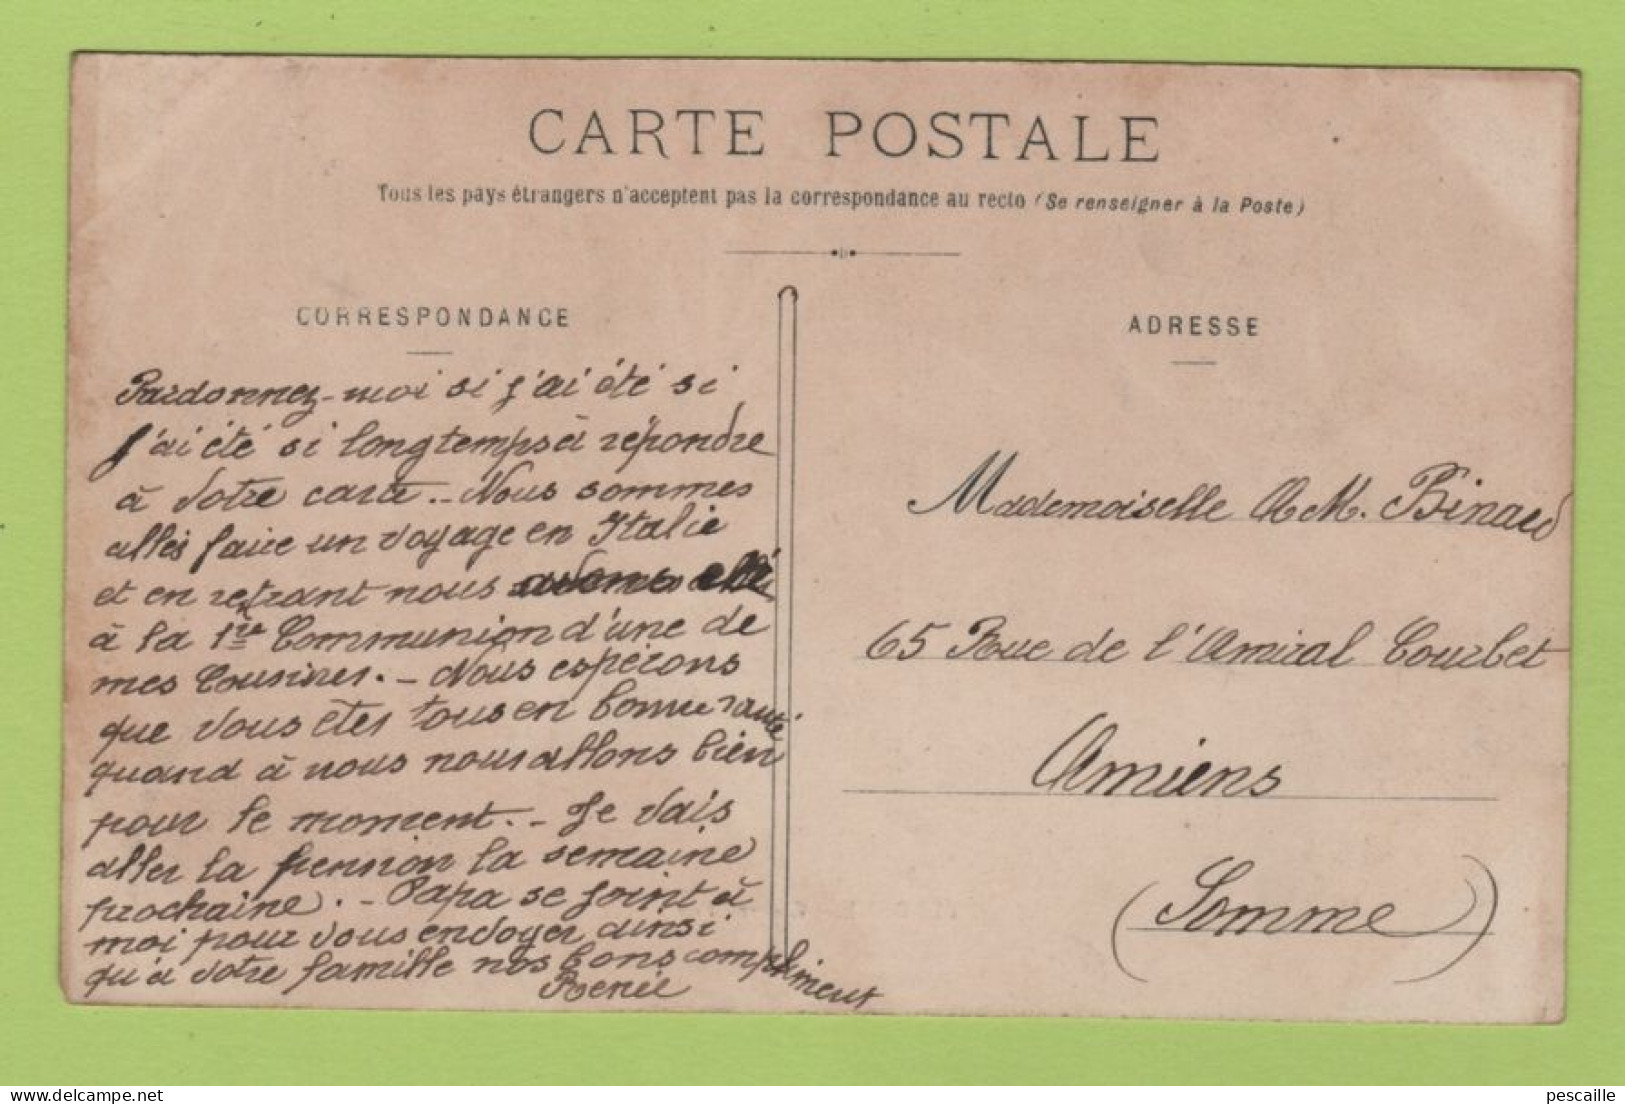 CARTE POSTALE
Tous les pays étrangers n'acceptent pas la correspondance au recto (Se renseigner à la Poste)
CORRESPONDANCE
Pardonnez-moi si j'ai été si
j'ai été si longtemps à répondre
à votre carte.- Nous sommes
allés faire un voyage en Italie
et en retrant nous avons été
à la 1ère Communion d'une de
mes Cousines.- Nous espérons
que vous êtes tous en bonne santé
quand à nous nous allons bien
pour le moment.- Je vais
aller la pension la semaine
prochaine.- Papa se joint à
moi pour vous envoyer ainsi
qu'à votre famille nos bons compliment
Renée
ADRESSE
Mademoiselle A M. Binard
65 Rue de l'Amiral Courbet
Amiens
(Somme)
pescaille